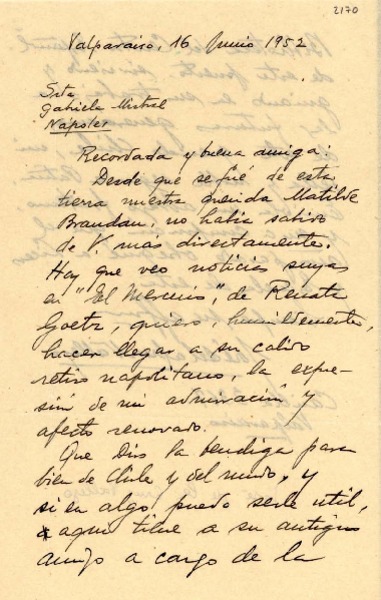 2170
Valparaíso, 16 Junio 1952
Srta
Gabriela Mistral
Nápoles
Recordada y buena amiga:
Desde que se fué de esta
tierra nuestra querida Matilde
Brandau, no había sabido
de V. más directamente.
Hoy que veo noticias suyas
en "El Mercurio", de Renata
Goetz, quiero, humildemente,
hacer llegar a su calido
retiro napolitano, la expre-
sión de mi admiración y
afecto renovado.
Que Dios la bendiga para
bien de Chile y del mundo, y
si en algo puedo serle útil,
aquí tiene a su antiguo
amigo a cargo de la